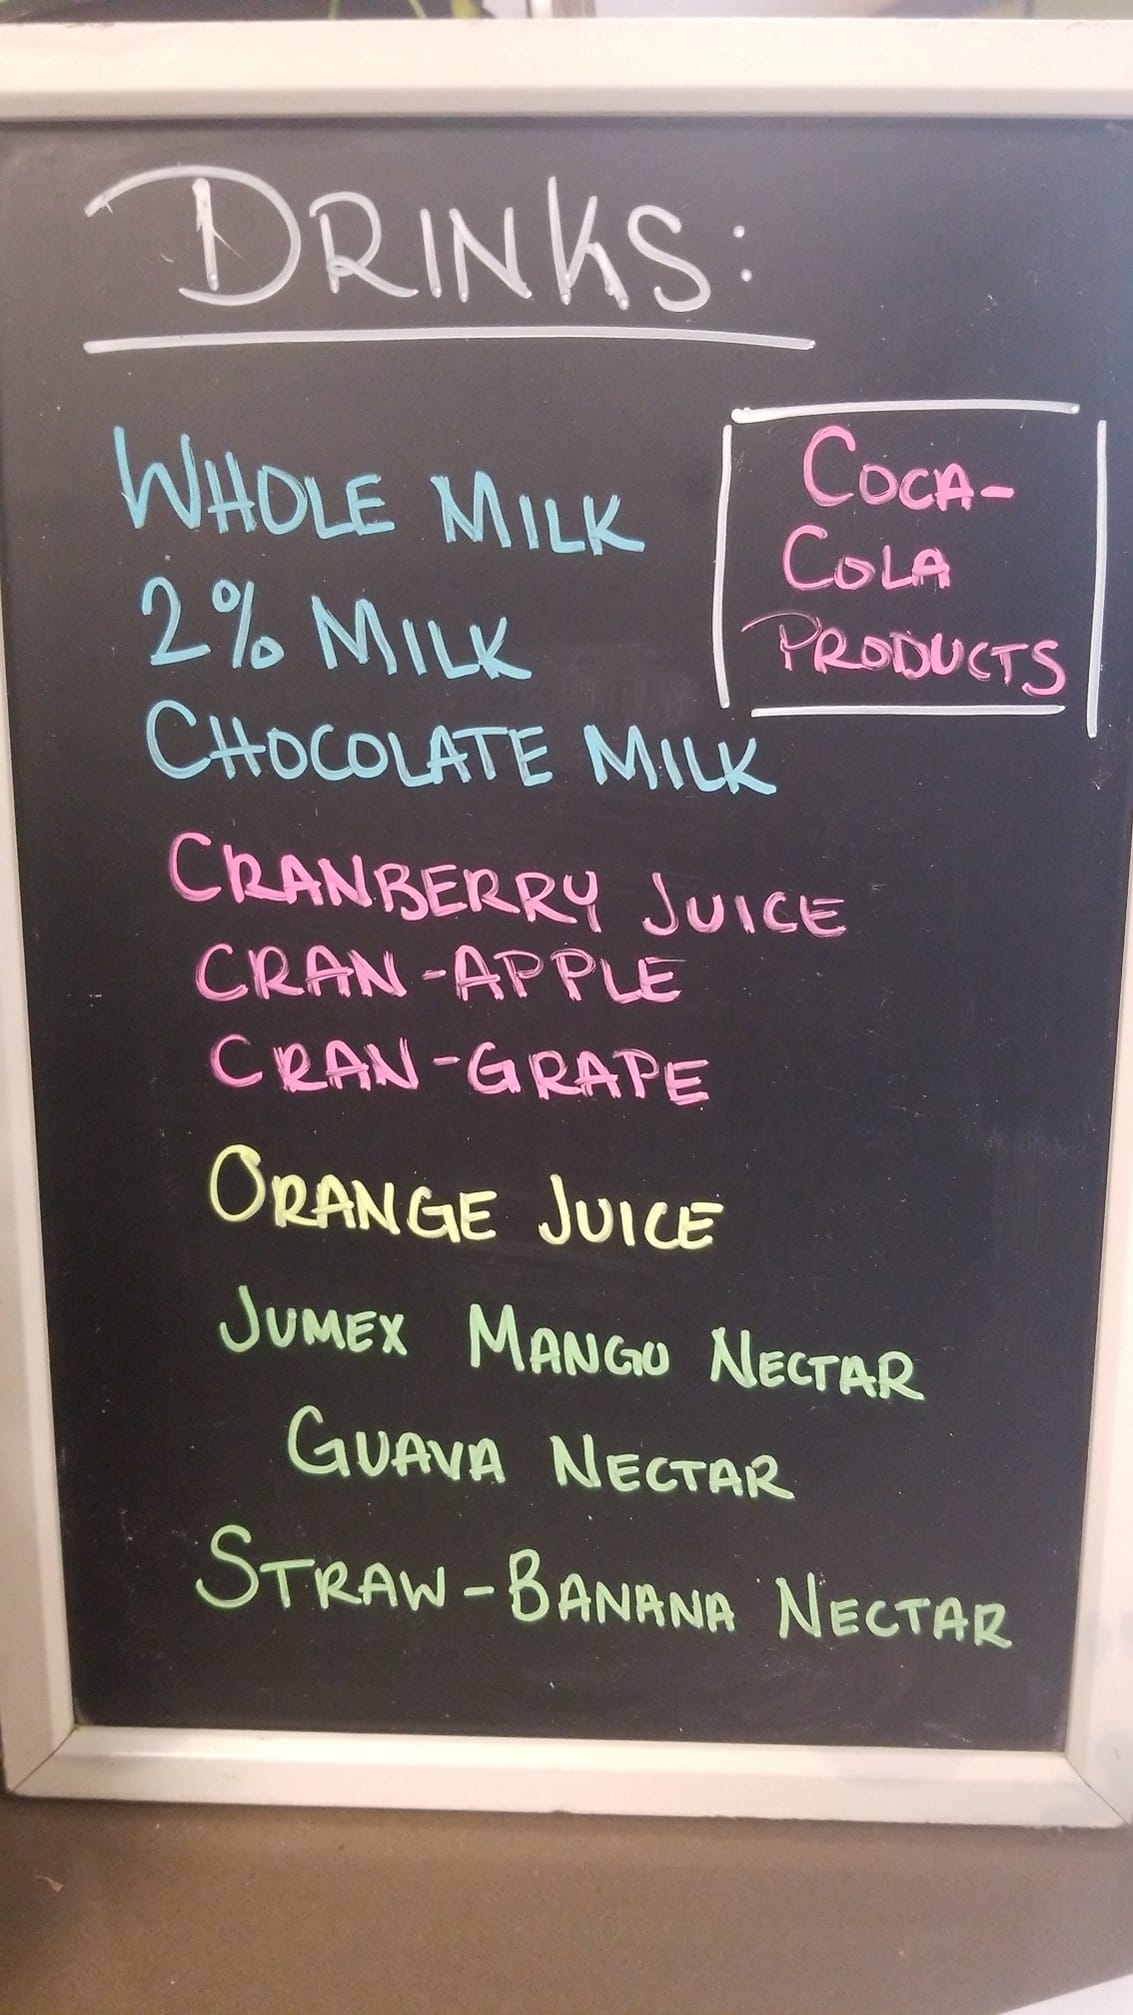 DRINKS:
WHOLE MILK
2% MILK
CHOCOLATE MILK
COCA-
COLA
PRODUCTS
CRANBERRY JUICE
CRAN-APPLE
CRAN-GRAPE
ORANGE JUICE
JUMEX MANGO NECTAR
GUAVA NECTAR
STRAW-BANANA NECTAR